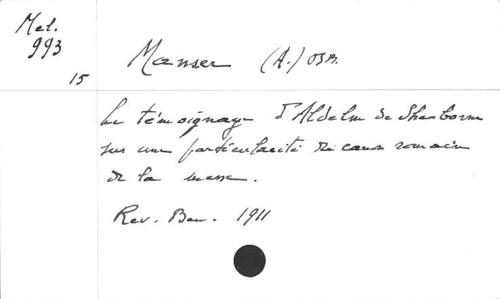 Mel.
993
15
Manser (A.) OSB.
Le témoignage d'Aldelm de Sherborne
sur une particularité du canon romain
de la messe.
Rev. Ben. 1911